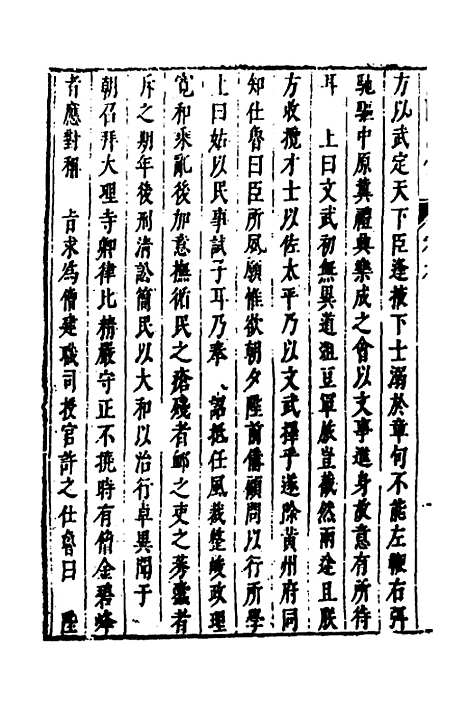 方以武定天下臣逢掖下士溺於章句不能左鞬右弭
馳驅中原冀禮典樂成之會以文事進身故意有所待
耳 上曰文武初無異道俎豆軍旅豈截然兩途且朕
方收攬才士以佐太平乃以文武擇乎遂除黃州府同
知仕魯曰臣所夙願惟欲朝夕陛前備顧問以行所學
上曰姑以民事試子耳乃奉 詔抵任風裁整峻政理
寬和承亂後加意撫循民之瘡殘者卹之吏之蓁蠹者
斥之期年後刑清訟簡民以大和以治行卓異聞于
朝召拜大理寺卿律比精嚴守正不撓時有僧金碧峰
者應對稱 旨求為僧建職司授官許之仕魯曰 陛